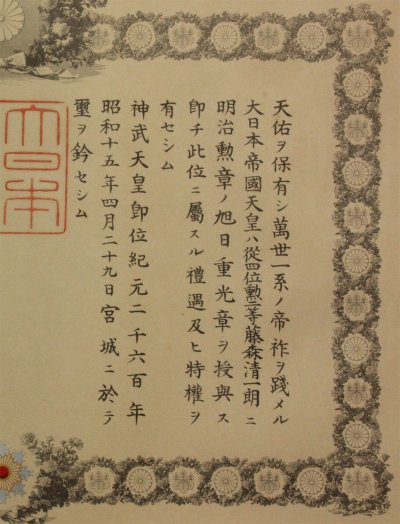 天佑ヲ保有シ萬世一系ノ帝祚ヲ踐メル
大日本帝國天皇ハ從四位勲三等藤森清一朗ニ
明治勲章ノ旭日重光章ヲ授與ス
卽チ此位ニ屬スル禮遇及ヒ特權ヲ
有セシム
神武天皇卽位紀元二千六百年
昭和十五年四月二十九日宮城ニ於テ
璽ヲ鈐セシム